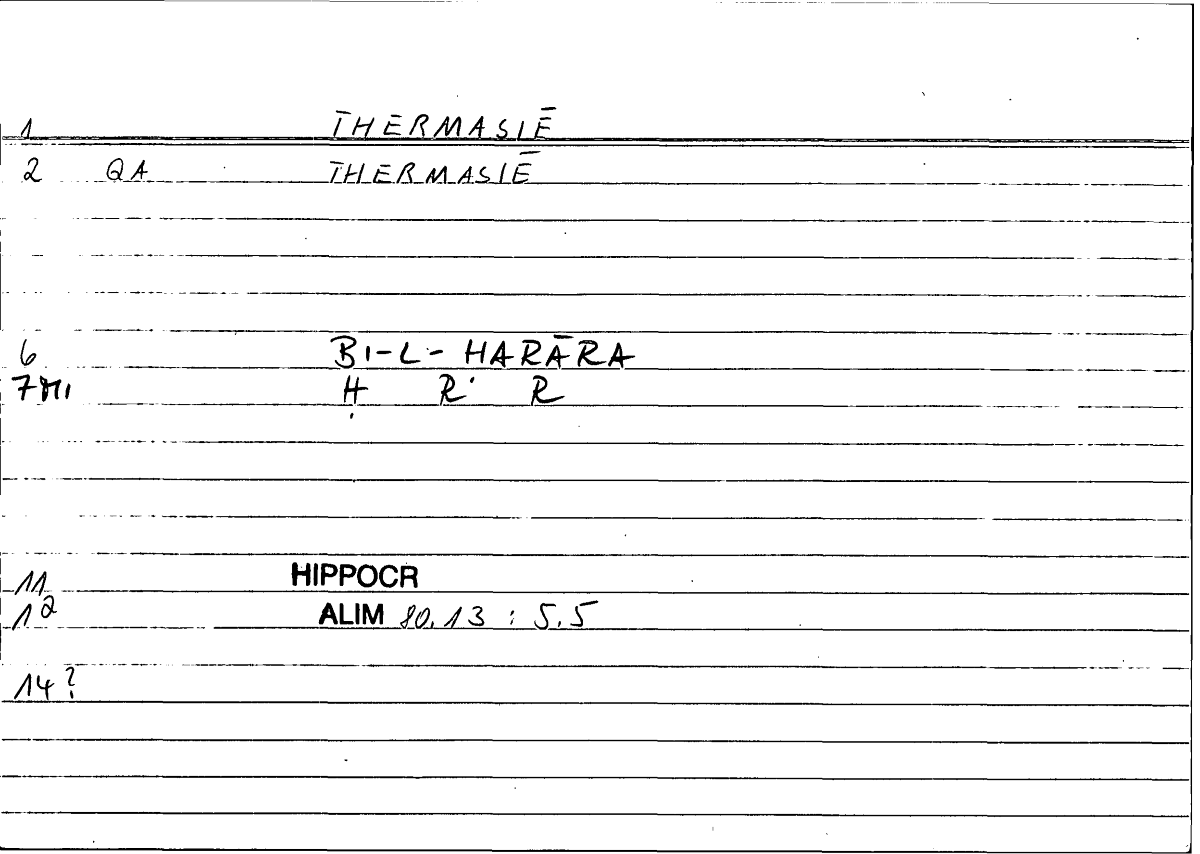 1 T̄HERMASIĒ
2 QA T̄HERMASIĒ
6 BI-L-HARĀRA
7 MI Ḥ R R
11 HIPPOCR
12 ALIM 80.13 : 5.5
14?